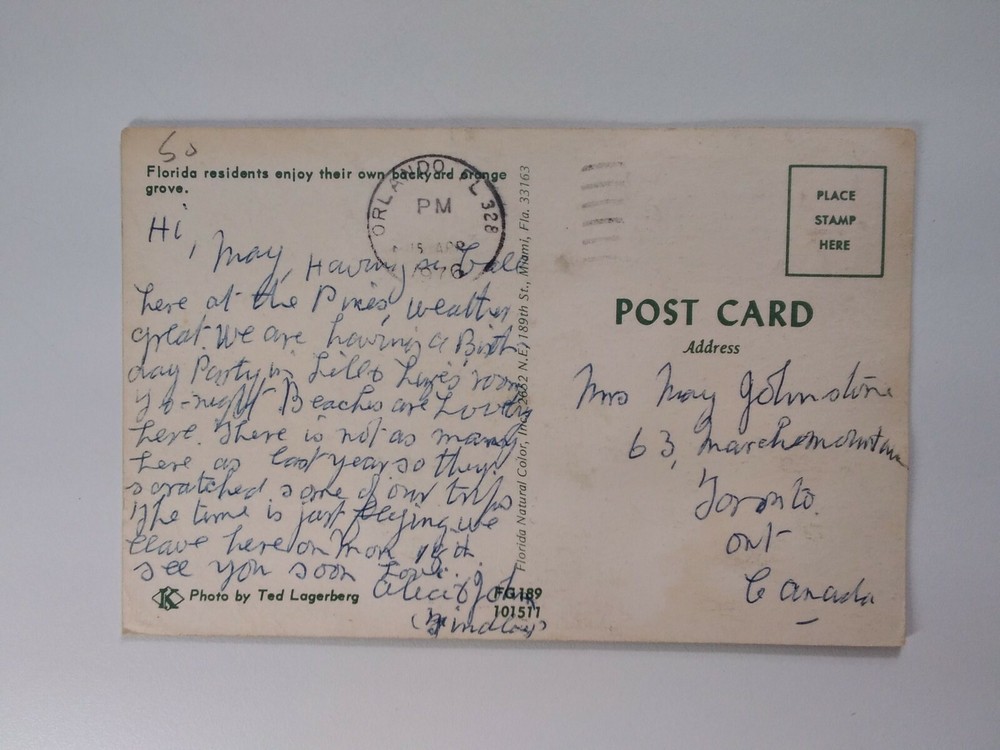 50
Florida residents enjoy their own backyard orange
grove.
ORLANDO, FL 328
PM
15 APR
1976
Hi,
May, Having a Ball
here at the Pines, weather
great. We are having a Birth
day Party in Lill & room
to-night Beaches are Lovely
here. There is not as many
here as last year so they
scratched some of our trips
The time is just flying we
leave here on Mon
see you soon Love.
& John
(Findlay)
Photo by Ted Lagerberg
FG189
101511
Florida Natural Color, Inc., 2652 N.E. 189th St., Miami, Fla. 33163
PLACE
STAMP
HERE
POST CARD
Address
Mrs May Johnstone
63, Marchmount
Toronto.
Ont
Canada